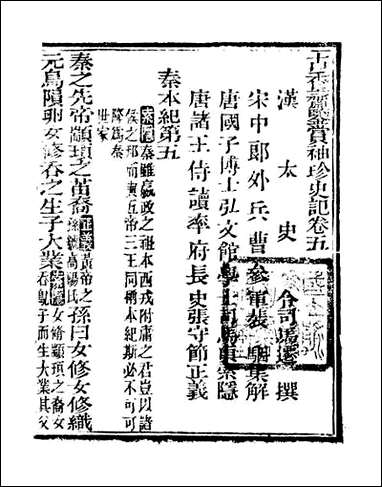 古香齋鑒賞袖珍史記卷五
漢太史令司馬遷撰
宋中郎外兵曹參軍裴駰集解
唐國子博士弘文館學士司馬貞索隱
唐諸王侍讀率府長史張守節正義
秦本紀第五
索隱秦雖嬴政之祖本西戎附庸之君豈以諸
侯之邦而與五帝三王同稱本紀斯必不可可
降爲秦
世家
秦之先帝顓頊之苗裔正義黃帝之孫號高陽氏孫曰女修女修織
元鳥隕卵女修吞之生子大業索隱女脩顓頊之裔女吞鳦子而生大業其父